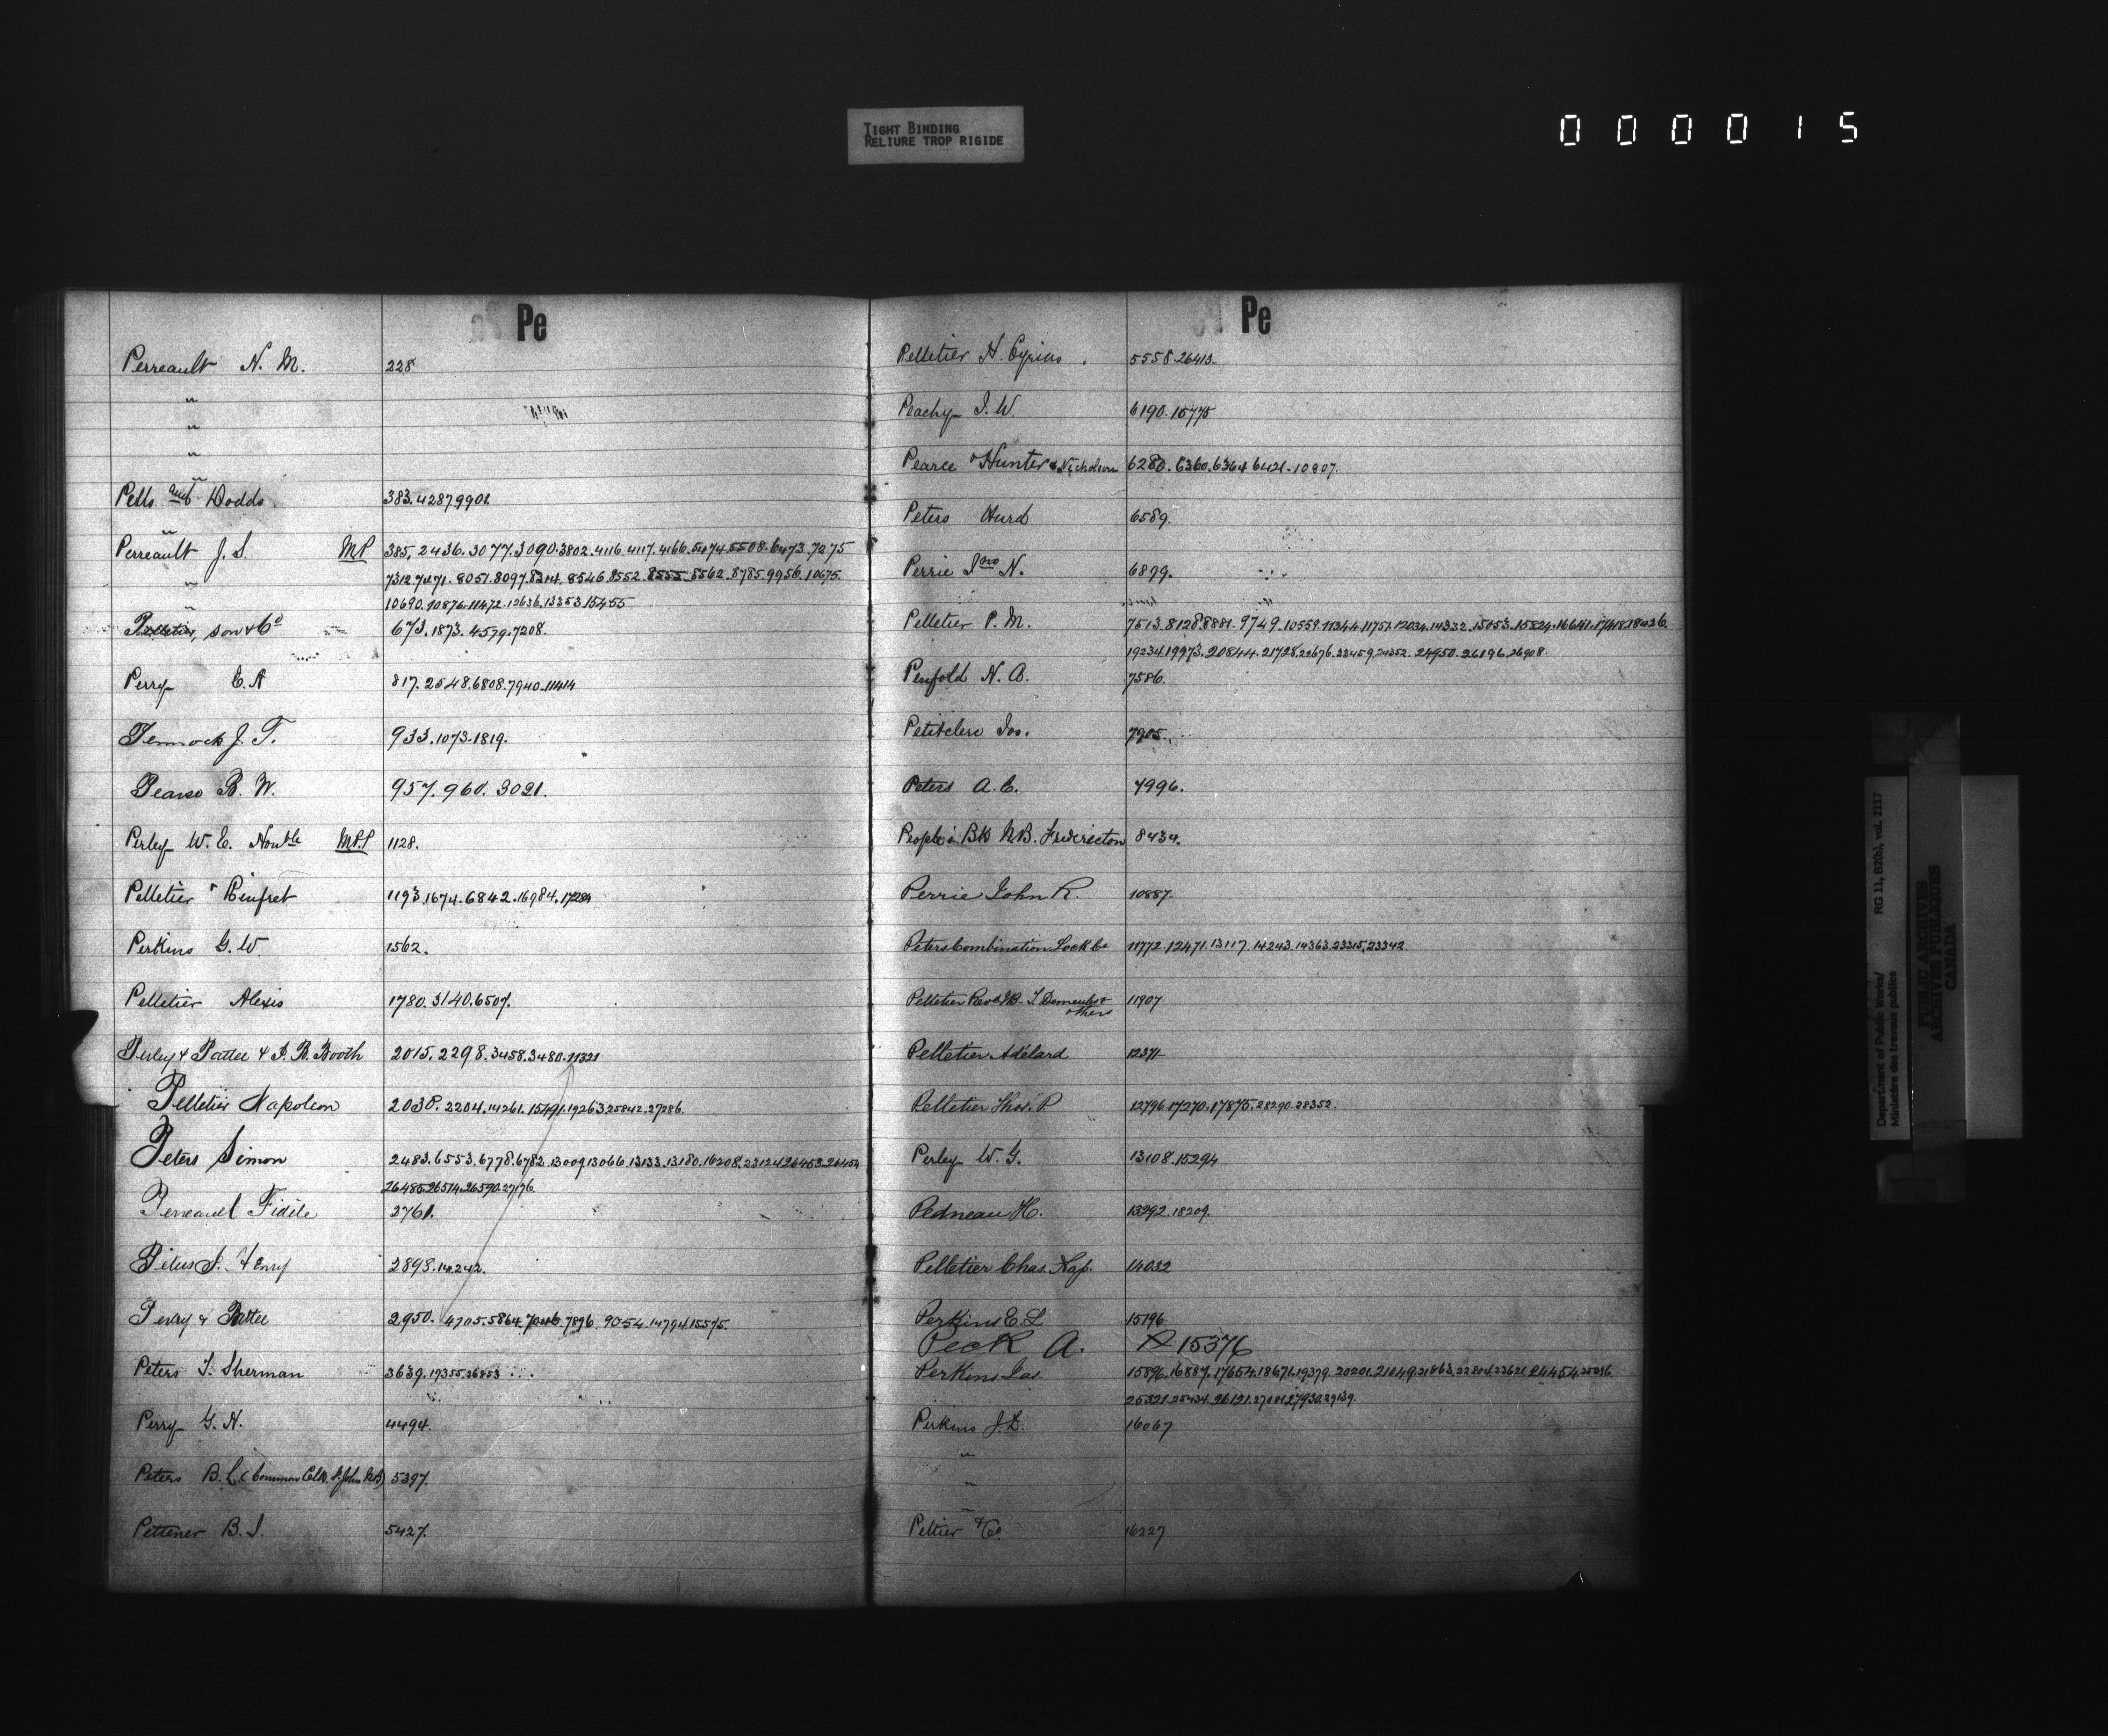 TIGHT BINDING
RELIURE TROP RIGIDE
000015
Pe
Perreault N. M. 228
"
"
"
"
Pells and Dodds 383.4287.9901.
"
Perreault J. S. MP 385.2436.3077.3090.3802.4116.4117.4166.5474.5508.6473.7275
" 7312.7471.8051.8097.8314.8546.8552.8555.8562.8785.9956.10675.
" 10690.10876.11472.12636.13353.15455
Pelletier, son & Co 673.1873.4579.7208.
Perry E. A 817.2548.6808.7940.11414
Pennock J. T. 933.1073.1819.
Pearse B. W. 957.960.3021.
Perley W. E. Honble MPP 1128.
Pelletier & Rinfret 1193.1674.6842.16984.17284
Perkins G. W. 1562.
Pelletier Alexis 1780.3140.6507.
Perley & Pattee & J. R. Booth 2015.2298.3458.3480.11321
Pelletier Napoleon 2038.2204.14261.15491.19263.25842.27286.
Peters Simon 2483.6553.6778.6782.13009.13066.13133.13180.16208.23124.26453.26454
26485.26514.26590.27176
Perreault Fidèle 2761.
Henry 2898.14242.
Perley & Pattee 2950.4705.5864.7046.7896.9054.14794.15575.
Peters T. Sherman 3639.19355.26853
Perry G. N. 4494.
Peters B. L. (Common Clk. St. John NB) 5397.
Pettener B. J. 5427.
Pe
Pelletier H. Cyrias. 5558.26413
Peachy J. W. 6190.15775
Pearce & Hunter & Nicholson 6280.6360.6364.6421.10807.
Peters Hurd 6589.
Perrie Jno N. 6899.
Pelletier P. M. 7513.8128.8881.9749.10559.11344.11751.12034.14332.15053.15824.16641.17418.18426.
19234.19973.20844.21728.22676.23459.24352.24950.26196.26908.
Penfold N. B. 7586.
Petitclerc Jos. 7905.
Peters A. C. 7996.
People's Bk N.B. Fredericton 8434.
Perrie John R. 10887.
Peters Combination Lock Co 11772.12471.13117.14243.14363.23315.23342.
Pelletier Revd J B - T Demeules & others 11907
Pelletier Adélard 12371
Pelletier Thos. P 12796.17270.17875.28290.28352.
Perley W. G. 13108.15294
Pedneau H. 13292.18209.
Pelletier Chas. Nap. 14032
Perkins E. L 15196
Peck A. 15376
Perkins Jas 15896.16887.17654.18671.19379.20201.21049.21863.22804.23621.24454.25036
25321.25434.26121.27001.27930.29139.
Perkins J. D. 16067
"
"
"
Peltier & Co. 16227
Department of Public Works/
Ministère des travaux publics
RG 11, B2(b), vol. 2117
PUBLIC ARCHIVES
ARCHIVES PUBLIQUES
CANADA